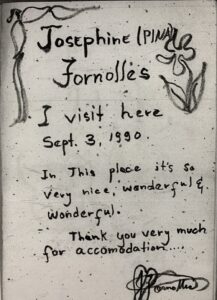 Josephine (PINA)
Fornolles
I visit here
Sept. 3, 1990.
In This place it's so
very nice, wonderful &
wonderful.
Thank you very much
for accomodation....